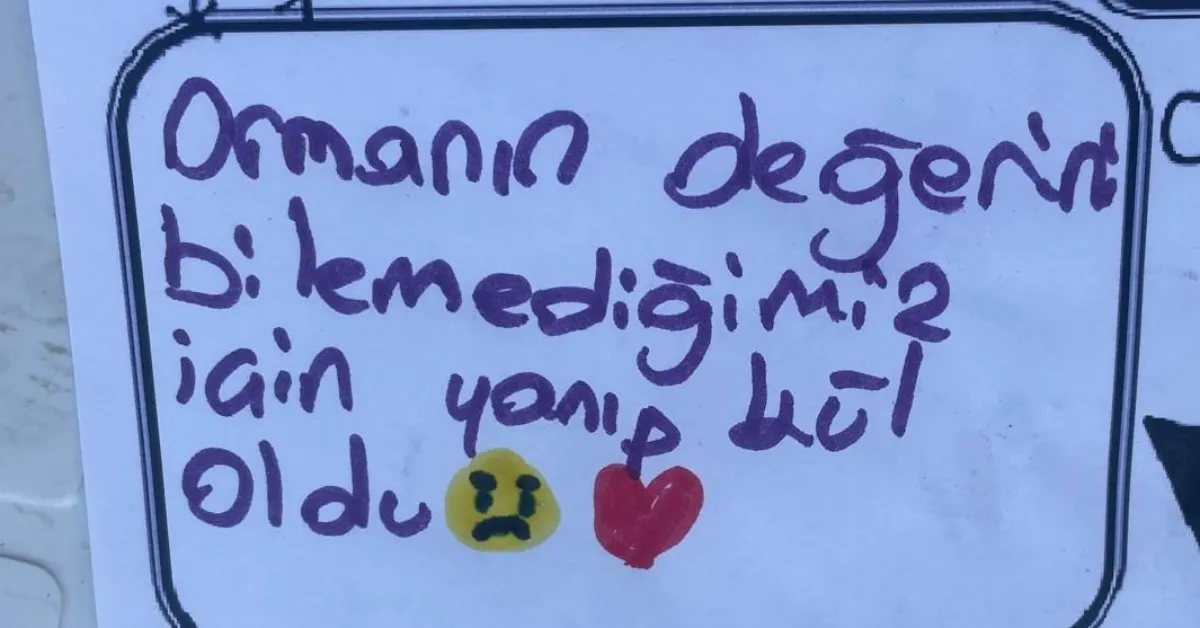 Ormanın değerini
bilemediğimiz
için yanıp kül
oldu